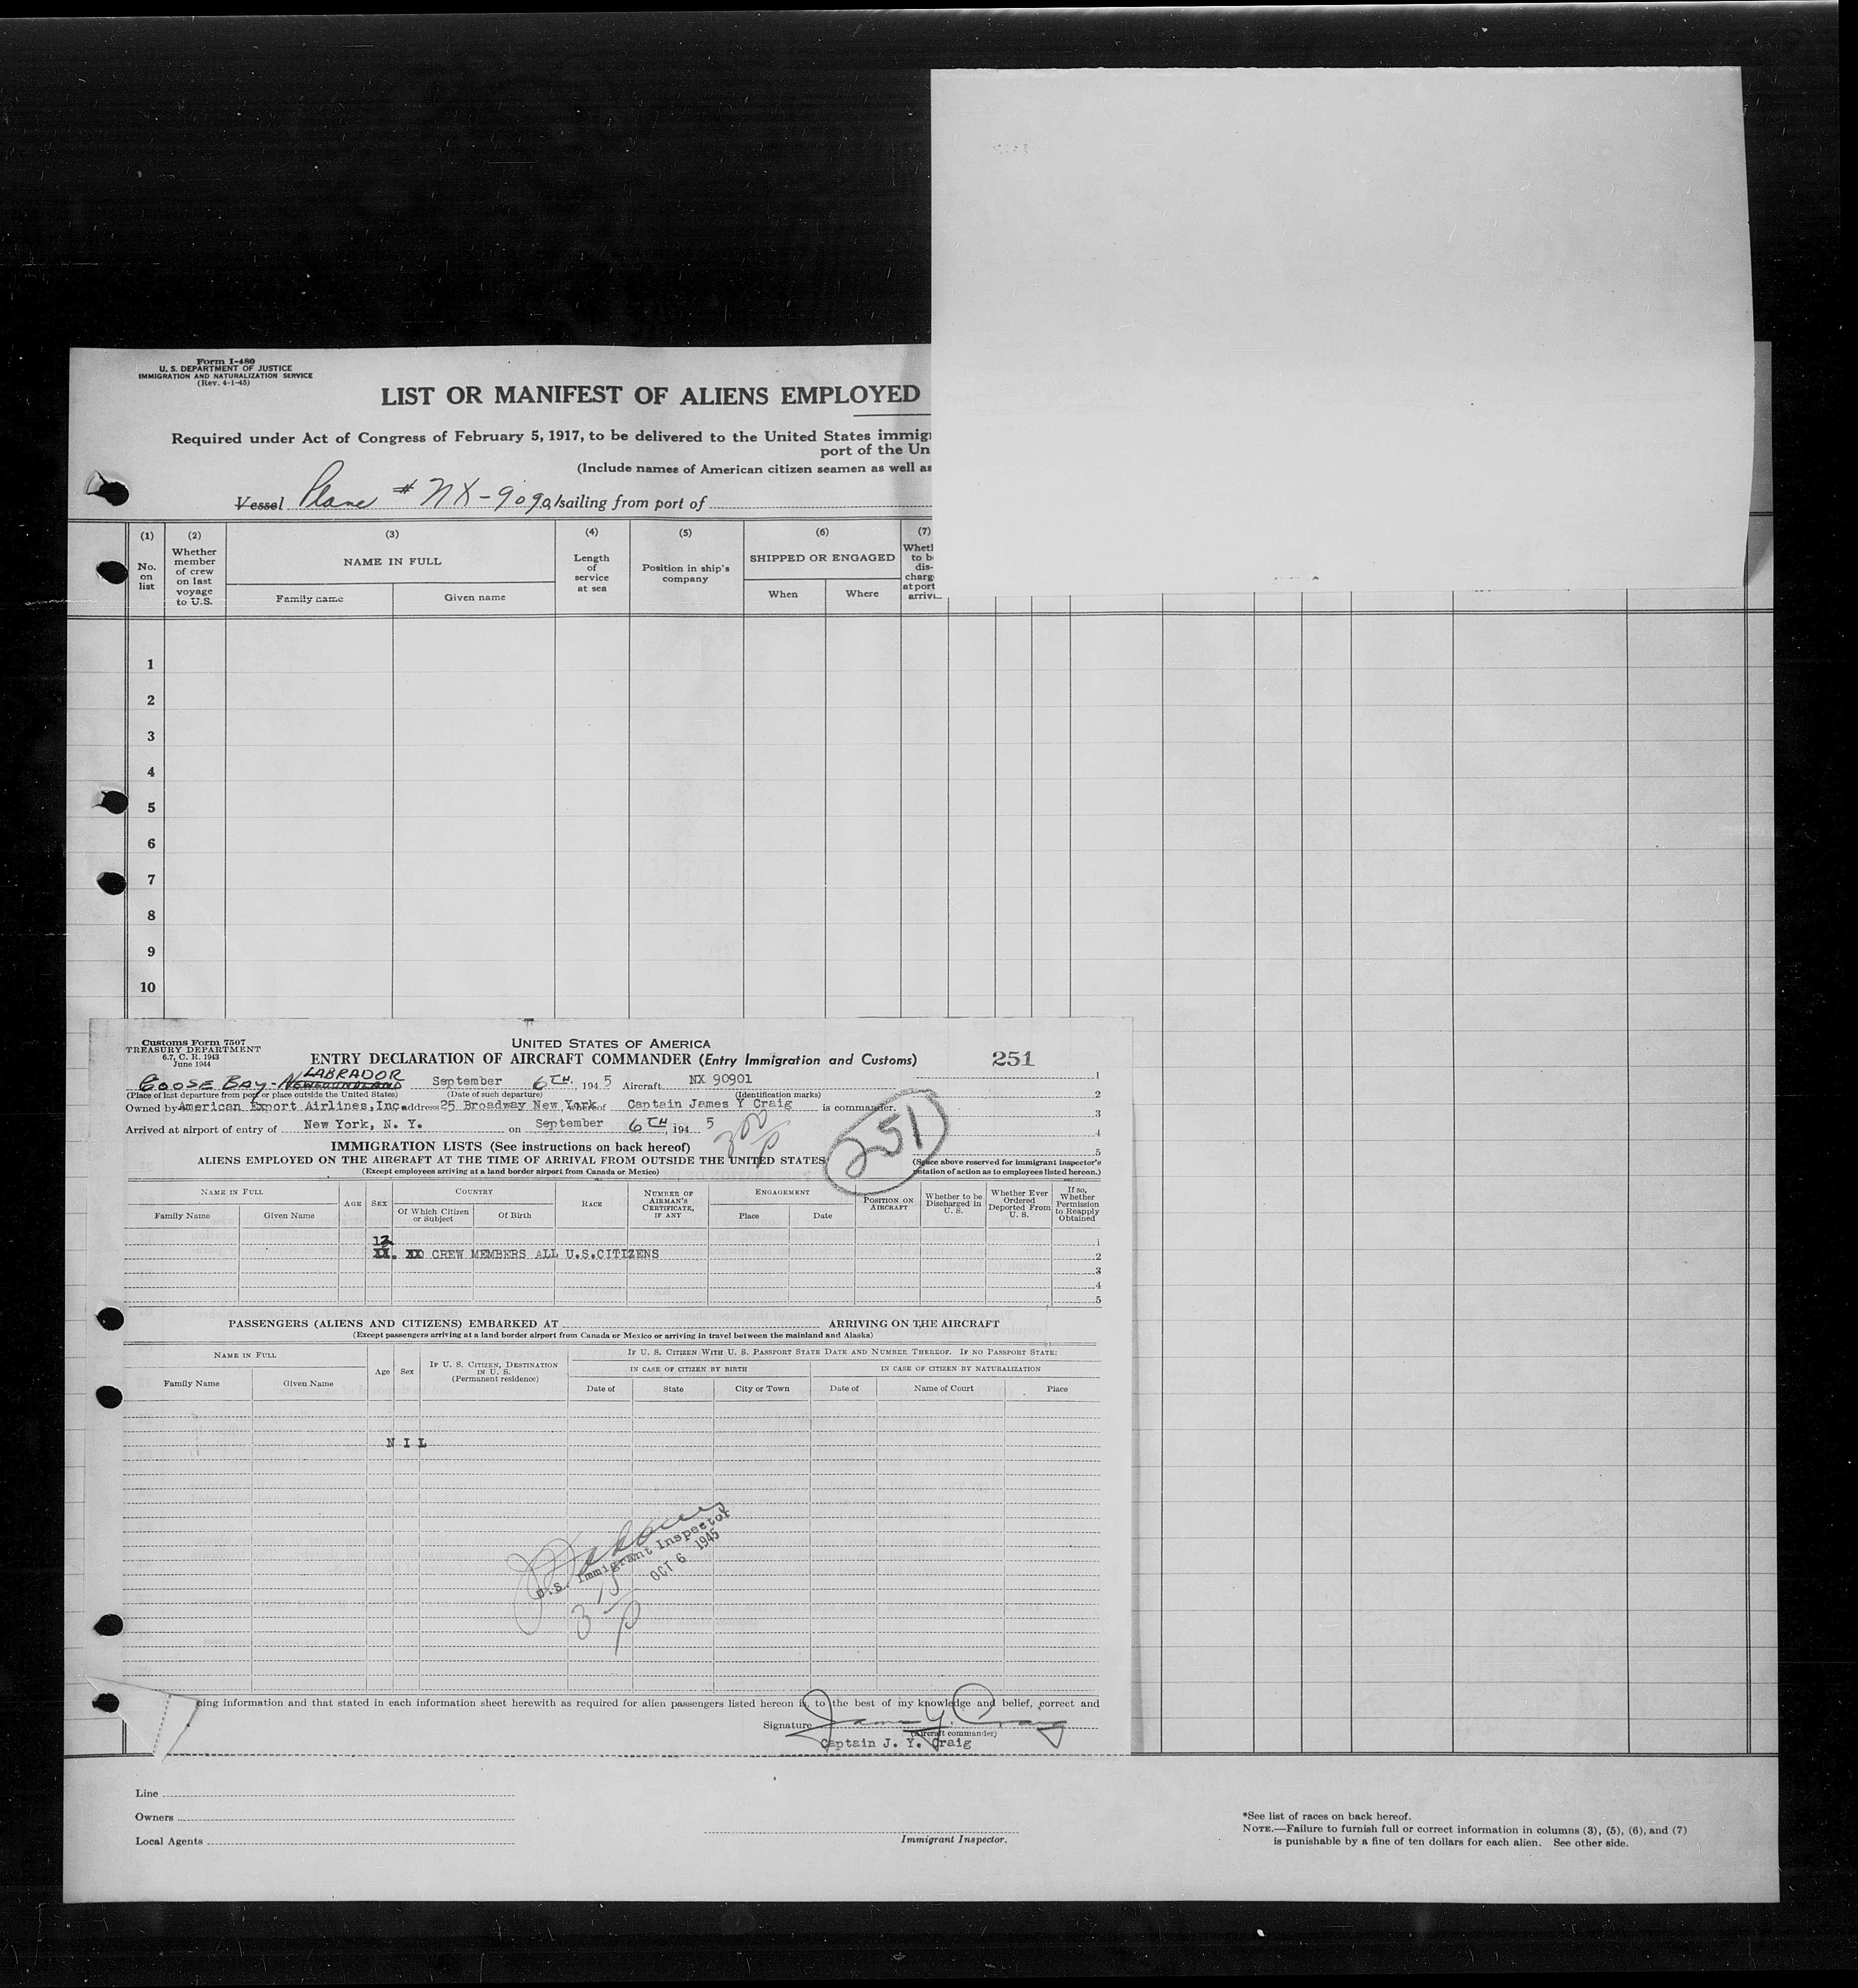 Form I-480
U. S. DEPARTMENT OF JUSTICE
IMMIGRATION AND NATURALIZATION SERVICE
(Rev. 4-1-45)
LIST OR MANIFEST OF ALIENS EMPLOYED
Required under Act of Congress of February 5, 1917, to be delivered to the United States immig
port of the Un
(Include names of American citizen seamen as well as
Vessel Plane # NX-90901 sailing from port of
(1) (2) (3) (4) (5) (6) (7)
No. on list
Whether member of crew on last voyage to U.S.
NAME IN FULL
Family name Given name
Length of service at sea
Position in ship's company
SHIPPED OR ENGAGED
When Where
Whet to b dis- charg at port arriv
1
2
3
4
5
6
7
8
9
10
Customs Form 7507
TREASURY DEPARTMENT
6.7, C. R. 1943
June 1944
UNITED STATES OF AMERICA
ENTRY DECLARATION OF AIRCRAFT COMMANDER (Entry Immigration and Customs)
251
LABRADOR
GOOSE BAY-NEWFOUNDLAND September 6TH, 1945 Aircraft NX 90901
(Place of last departure from port or place outside the United States) (Date of such departure) (Identification marks)
Owned by American Export Airlines, Inc. address 25 Broadway New York, whereof Captain James Y Craig is commander.
Arrived at airport of entry of New York, N. Y. on September 6TH, 1945
300
P
251
1
2
3
4
5
(Space above reserved for immigrant inspector's notation of action as to employees listed hereon.)
IMMIGRATION LISTS (See instructions on back hereof)
ALIENS EMPLOYED ON THE AIRCRAFT AT THE TIME OF ARRIVAL FROM OUTSIDE THE UNITED STATES
(Except employees arriving at a land border airport from Canada or Mexico)
NAME IN FULL
Family Name Given Name
AGE SEX
COUNTRY
Of Which Citizen or Subject Of Birth
RACE
NUMBER OF AIRMAN'S CERTIFICATE, IF ANY
ENGAGEMENT
Place Date
POSITION ON AIRCRAFT
Whether to be Discharged in U. S.
Whether Ever Ordered Deported From U. S.
If so, Whether Permission to Reapply Obtained
12
XX. XX CREW MEMBERS ALL U.S.CITIZENS
1
2
3
4
5
PASSENGERS (ALIENS AND CITIZENS) EMBARKED AT ARRIVING ON THE AIRCRAFT
(Except passengers arriving at a land border airport from Canada or Mexico or arriving in travel between the mainland and Alaska)
NAME IN FULL
Family Name Given Name
Age Sex
IF U. S. CITIZEN, DESTINATION IN U. S.
(Permanent residence)
IF U. S. CITIZEN WITH U. S. PASSPORT STATE DATE AND NUMBER THEREOF. IF NO PASSPORT STATE:
IN CASE OF CITIZEN BY BIRTH IN CASE OF CITIZEN BY NATURALIZATION
Date of State City or Town Date of Name of Court Place
N I L
U.S. Immigrant Inspector
OCT 6 1945
ing information and that stated in each information sheet herewith as required for alien passengers listed hereon is, to the best of my knowledge and belief, correct and
Signature James Y. Craig
(Aircraft commander)
Captain J. Y. Craig
Line
Owners
Local Agents
Immigrant Inspector.
*See list of races on back hereof.
NOTE.—Failure to furnish full or correct information in columns (3), (5), (6), and (7)
is punishable by a fine of ten dollars for each alien. See other side.